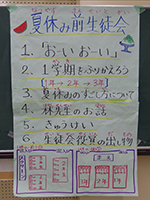 夏休み前生徒会
1.「お〜いお〜い」
2. 1学期をふりかえろう
1年→2年→3年
3. 夏休みのすごし方について
4. 林先生のお話
5. きゅうけい
6. 生徒会役員の出し物